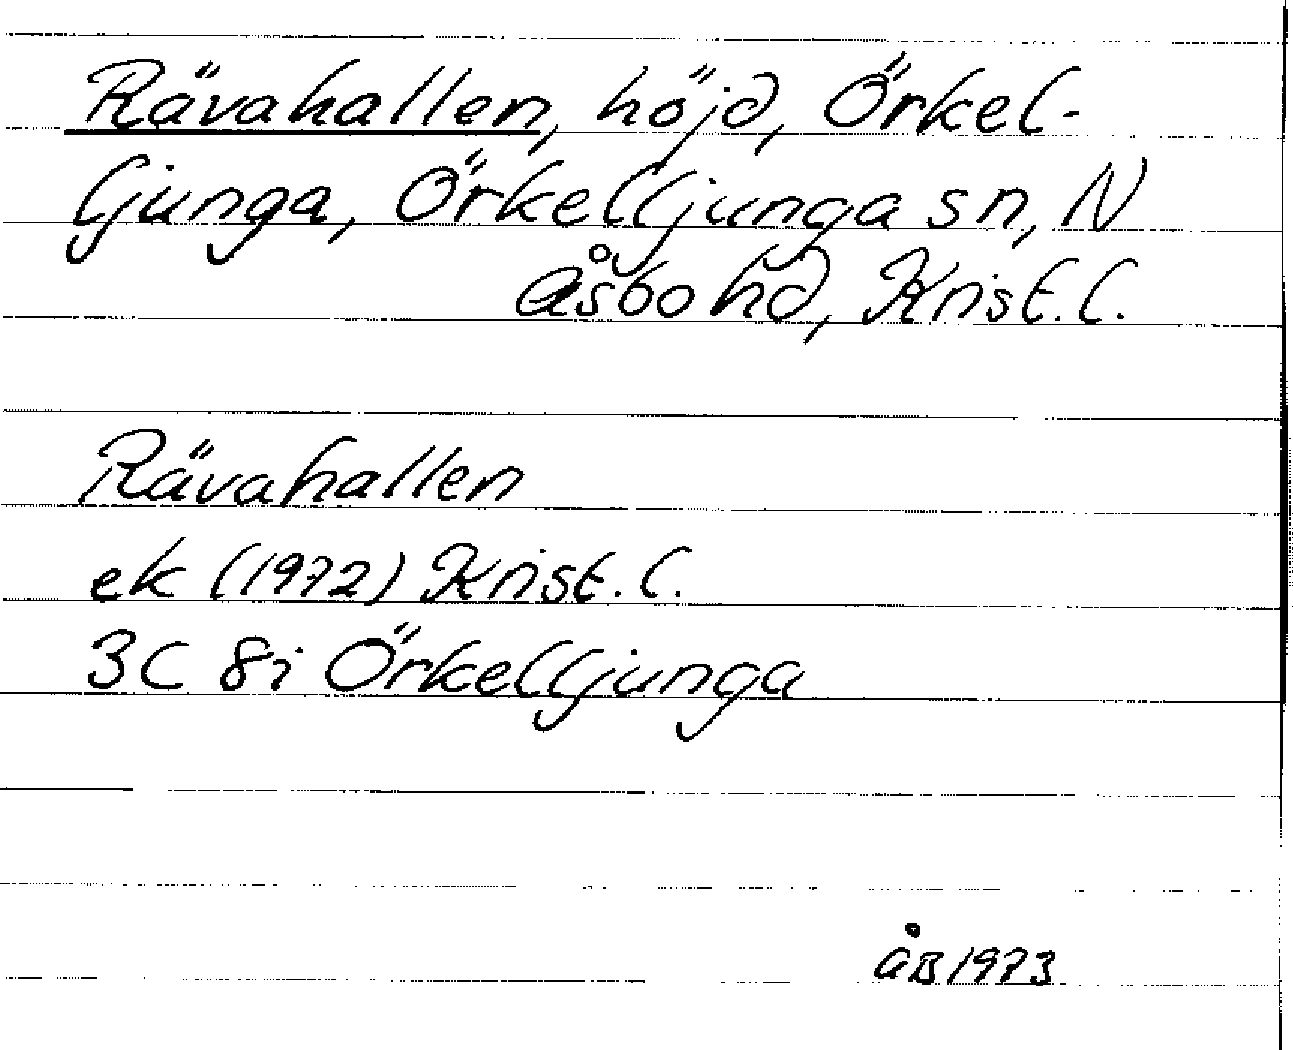 Rävahallen, höjd, Örkel-
ljunga, Örkelljunga sn, N
Åsbo hd, Krist.l.
Rävahallen
ek (1972) Krist.l.
3C 8i Örkelljunga
ÅB 1973